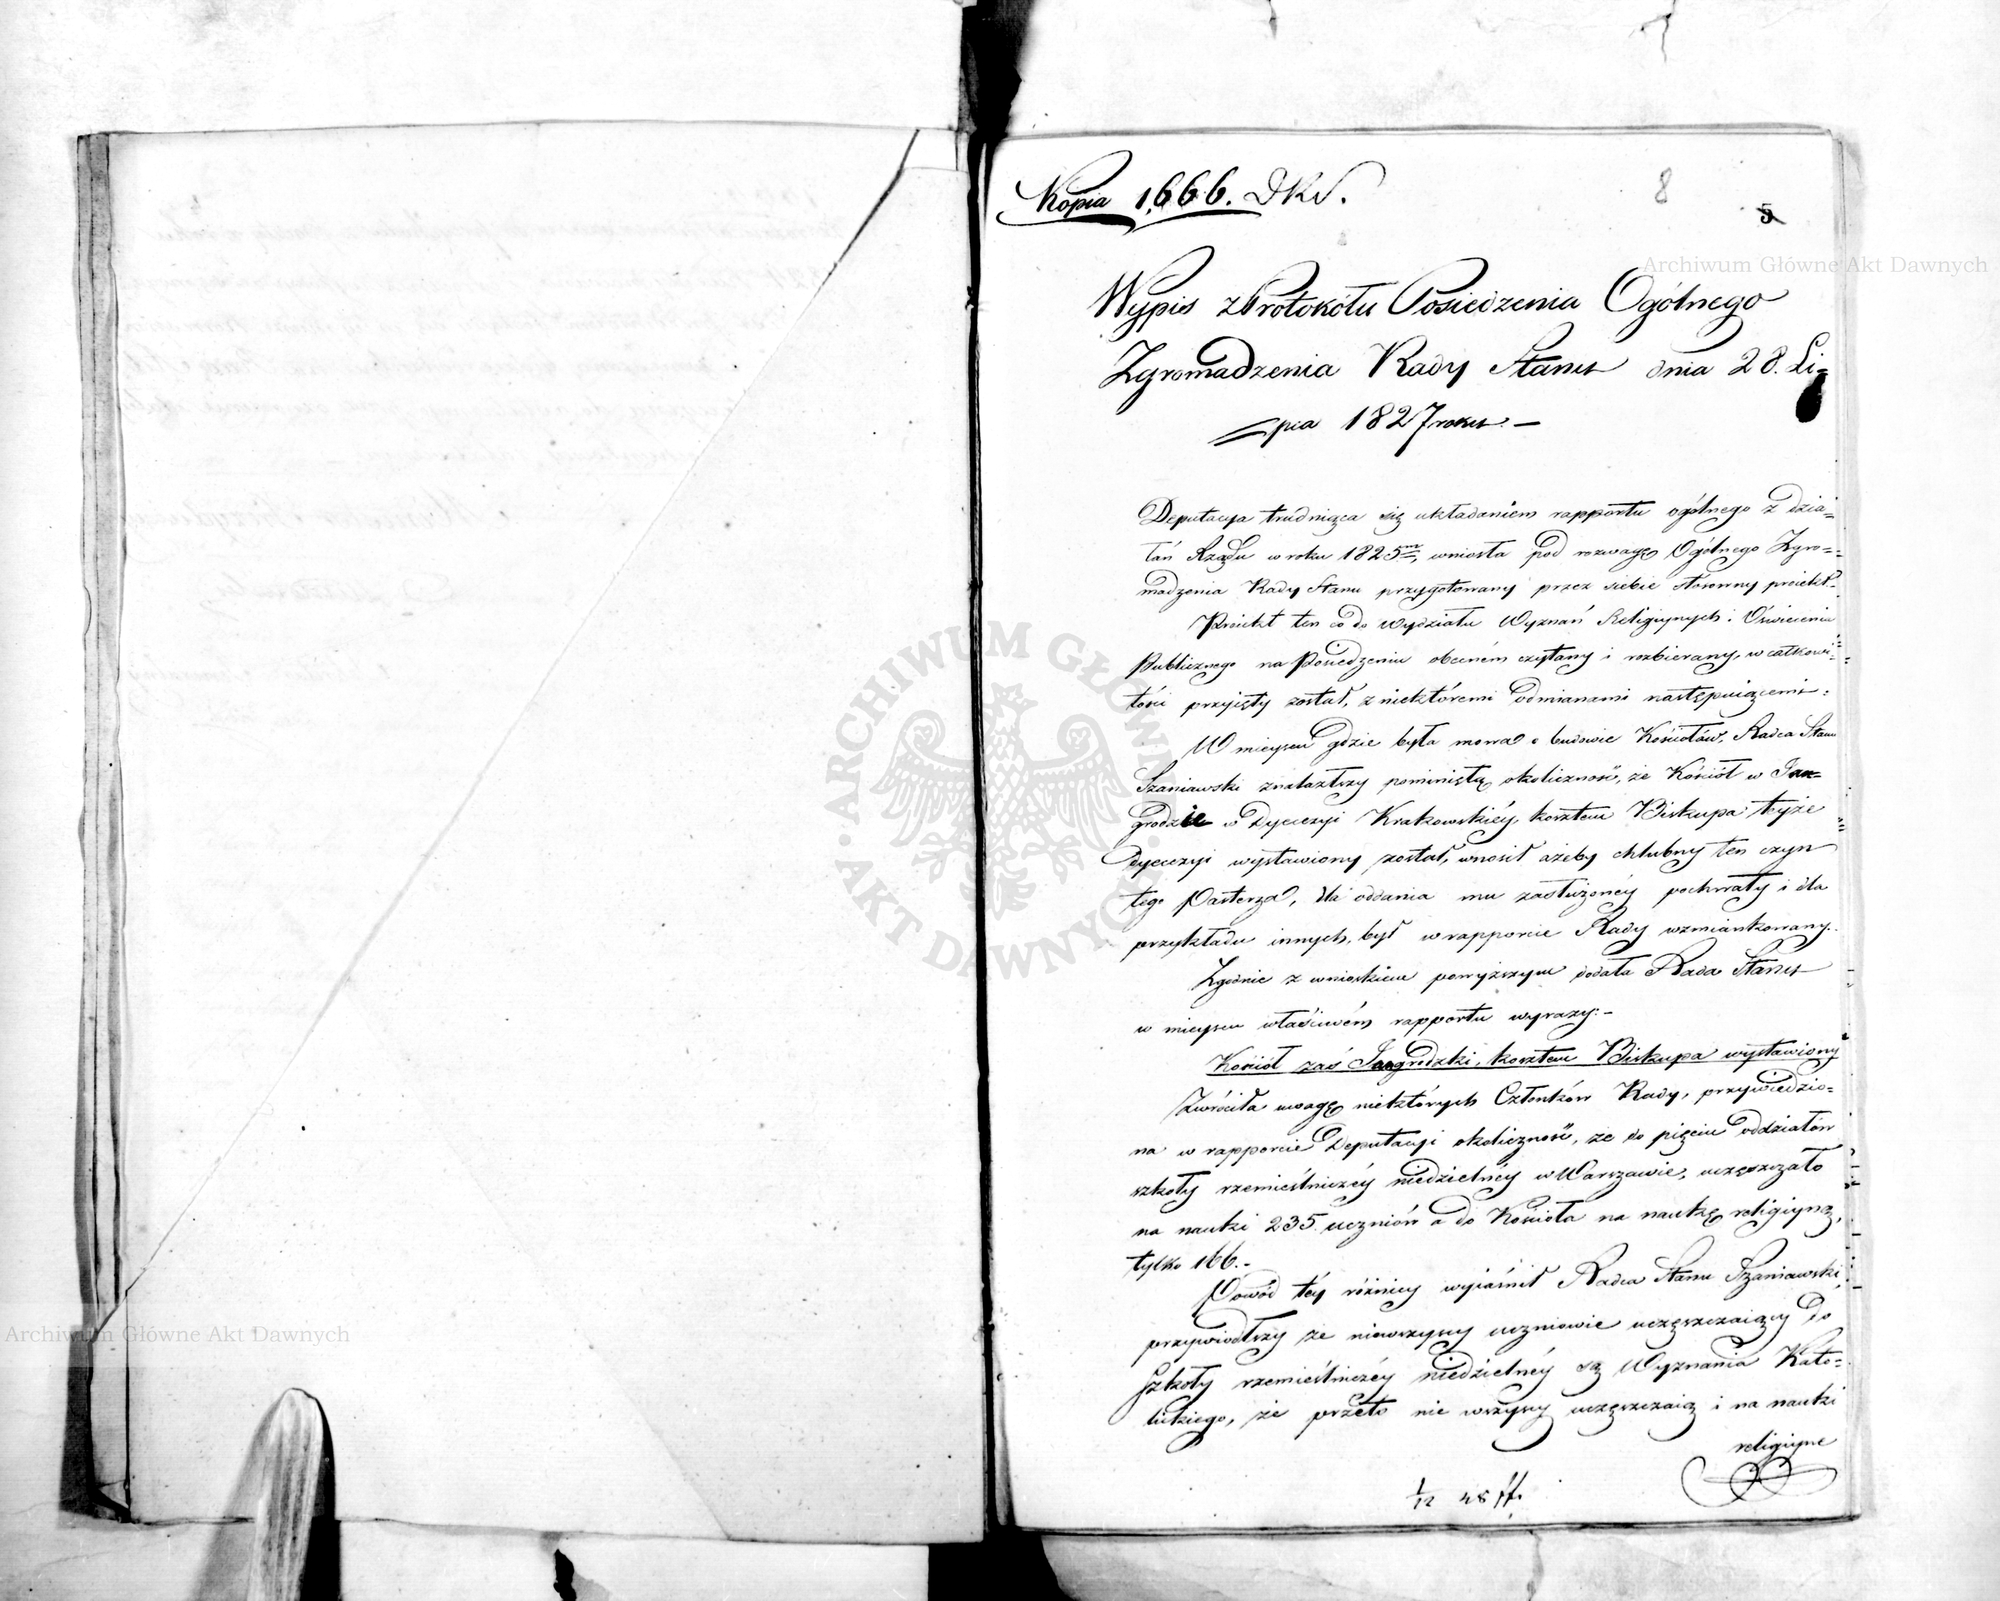 Kopia 1,666. DKS.
8
5
Wypis z Protokółu Posiedzenia Ogólnego
Zgromadzenia Rady Stanu dnia 28. Li=
=pca 1827 roku. –
Deputacya trudniąca się układaniem rapportu ogólnego z dzia=
łań Rządu w roku 1825m, wniosła pod rozwagę Ogólnego Zgro=
madzenia Rady Stanu przygotowany przez siebie stosowny proiekt.
Proiekt ten co do Wydziału Wyznań Religiynych i Oświecenia
Publicznego na Posiedzeniu obecném czytany i rozbierany, w całkowi=
tości przyięty został, z niektóremi odmianami następuiącemi:
W mieyscu gdzie była mowa o budowie Kościołów, Radca Stanu
Szaniawski znalazłszy pominiętą okoliczność, że Kościół w
grodzie w Dyecezyi Krakowskiéy, kosztem Biskupa teyże
dyecezyi wystawiony został, wnosił ażeby chlubny ten czyn
tego Pasterza, dla oddania mu zasłużonéy pochwały i dla
przykładu innych, był w rapporcie Rady wzmiankowany.
Zgodnie z wnioskiem powyższym dodała Rada Stanu
w mieyscu właściwém rapportu wyrazy: –
Kościół zaś kosztem Biskupa wystawiony
Zwróciła uwagę niektórych Członków Rady, przywiedzio=
na w rapporcie Deputacyi okoliczność, że do pięciu oddziałów
szkoły rzemieślniczéy niedzielnéy w Warszawie, uczęszczało
na nauki 235. uczniów a do Kościoła na naukę religiyną,
tylko 166. –
Powód téy różnicy wyiaśnił Radca Stanu Szaniawski,
przywiodłszy że niewszyscy uczniowie uczęszczaiący do
Szkoły rzemieślniczéy niedzielnéy są Wyznania Kato=
lickiego, że przeto nie wszyscy uczęszczaią i na nauki
religiyne
1/12 48
Archiwum Główne Akt Dawnych
Archiwum Główne Akt Dawnych
ARCHIWUM GŁÓWNE AKT DAWNYCH